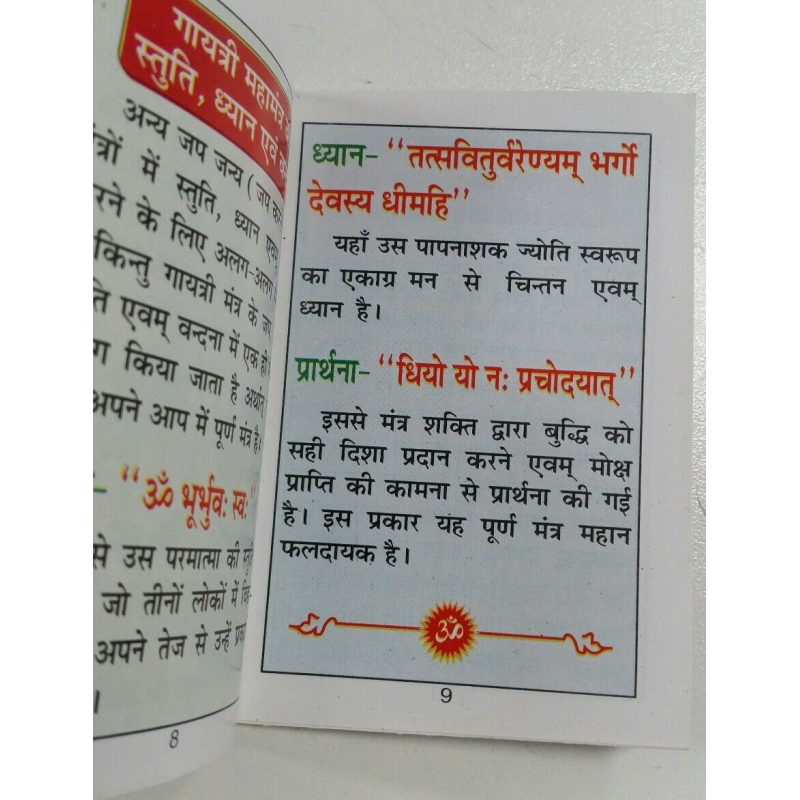 गायत्री महामंत्र
स्तुति, ध्यान एवं
अन्य जप जन्य (जप
में स्तुति, ध्यान
के लिए अलग-अलग
किन्तु गायत्री मंत्र के
एवम् वन्दना में एक ही
किया जाता है अर्थात्
अपने आप में पूर्ण मंत्र है।
“ॐ भूर्भुवः स्वः”
से उस परमात्मा की
जो तीनों लोकों में
अपने तेज से उन्हें
।
8
ध्यान- “तत्सवितुर्वरेण्यम् भर्गो
देवस्य धीमहि”
यहाँ उस पापनाशक ज्योति स्वरूप
का एकाग्र मन से चिन्तन एवम्
ध्यान है।
प्रार्थना- “धियो यो नः प्रचोदयात्”
इससे मंत्र शक्ति द्वारा बुद्धि को
सही दिशा प्रदान करने एवम् मोक्ष
प्राप्ति की कामना से प्रार्थना की गई
है। इस प्रकार यह पूर्ण मंत्र महान
फलदायक है।
ॐ
9